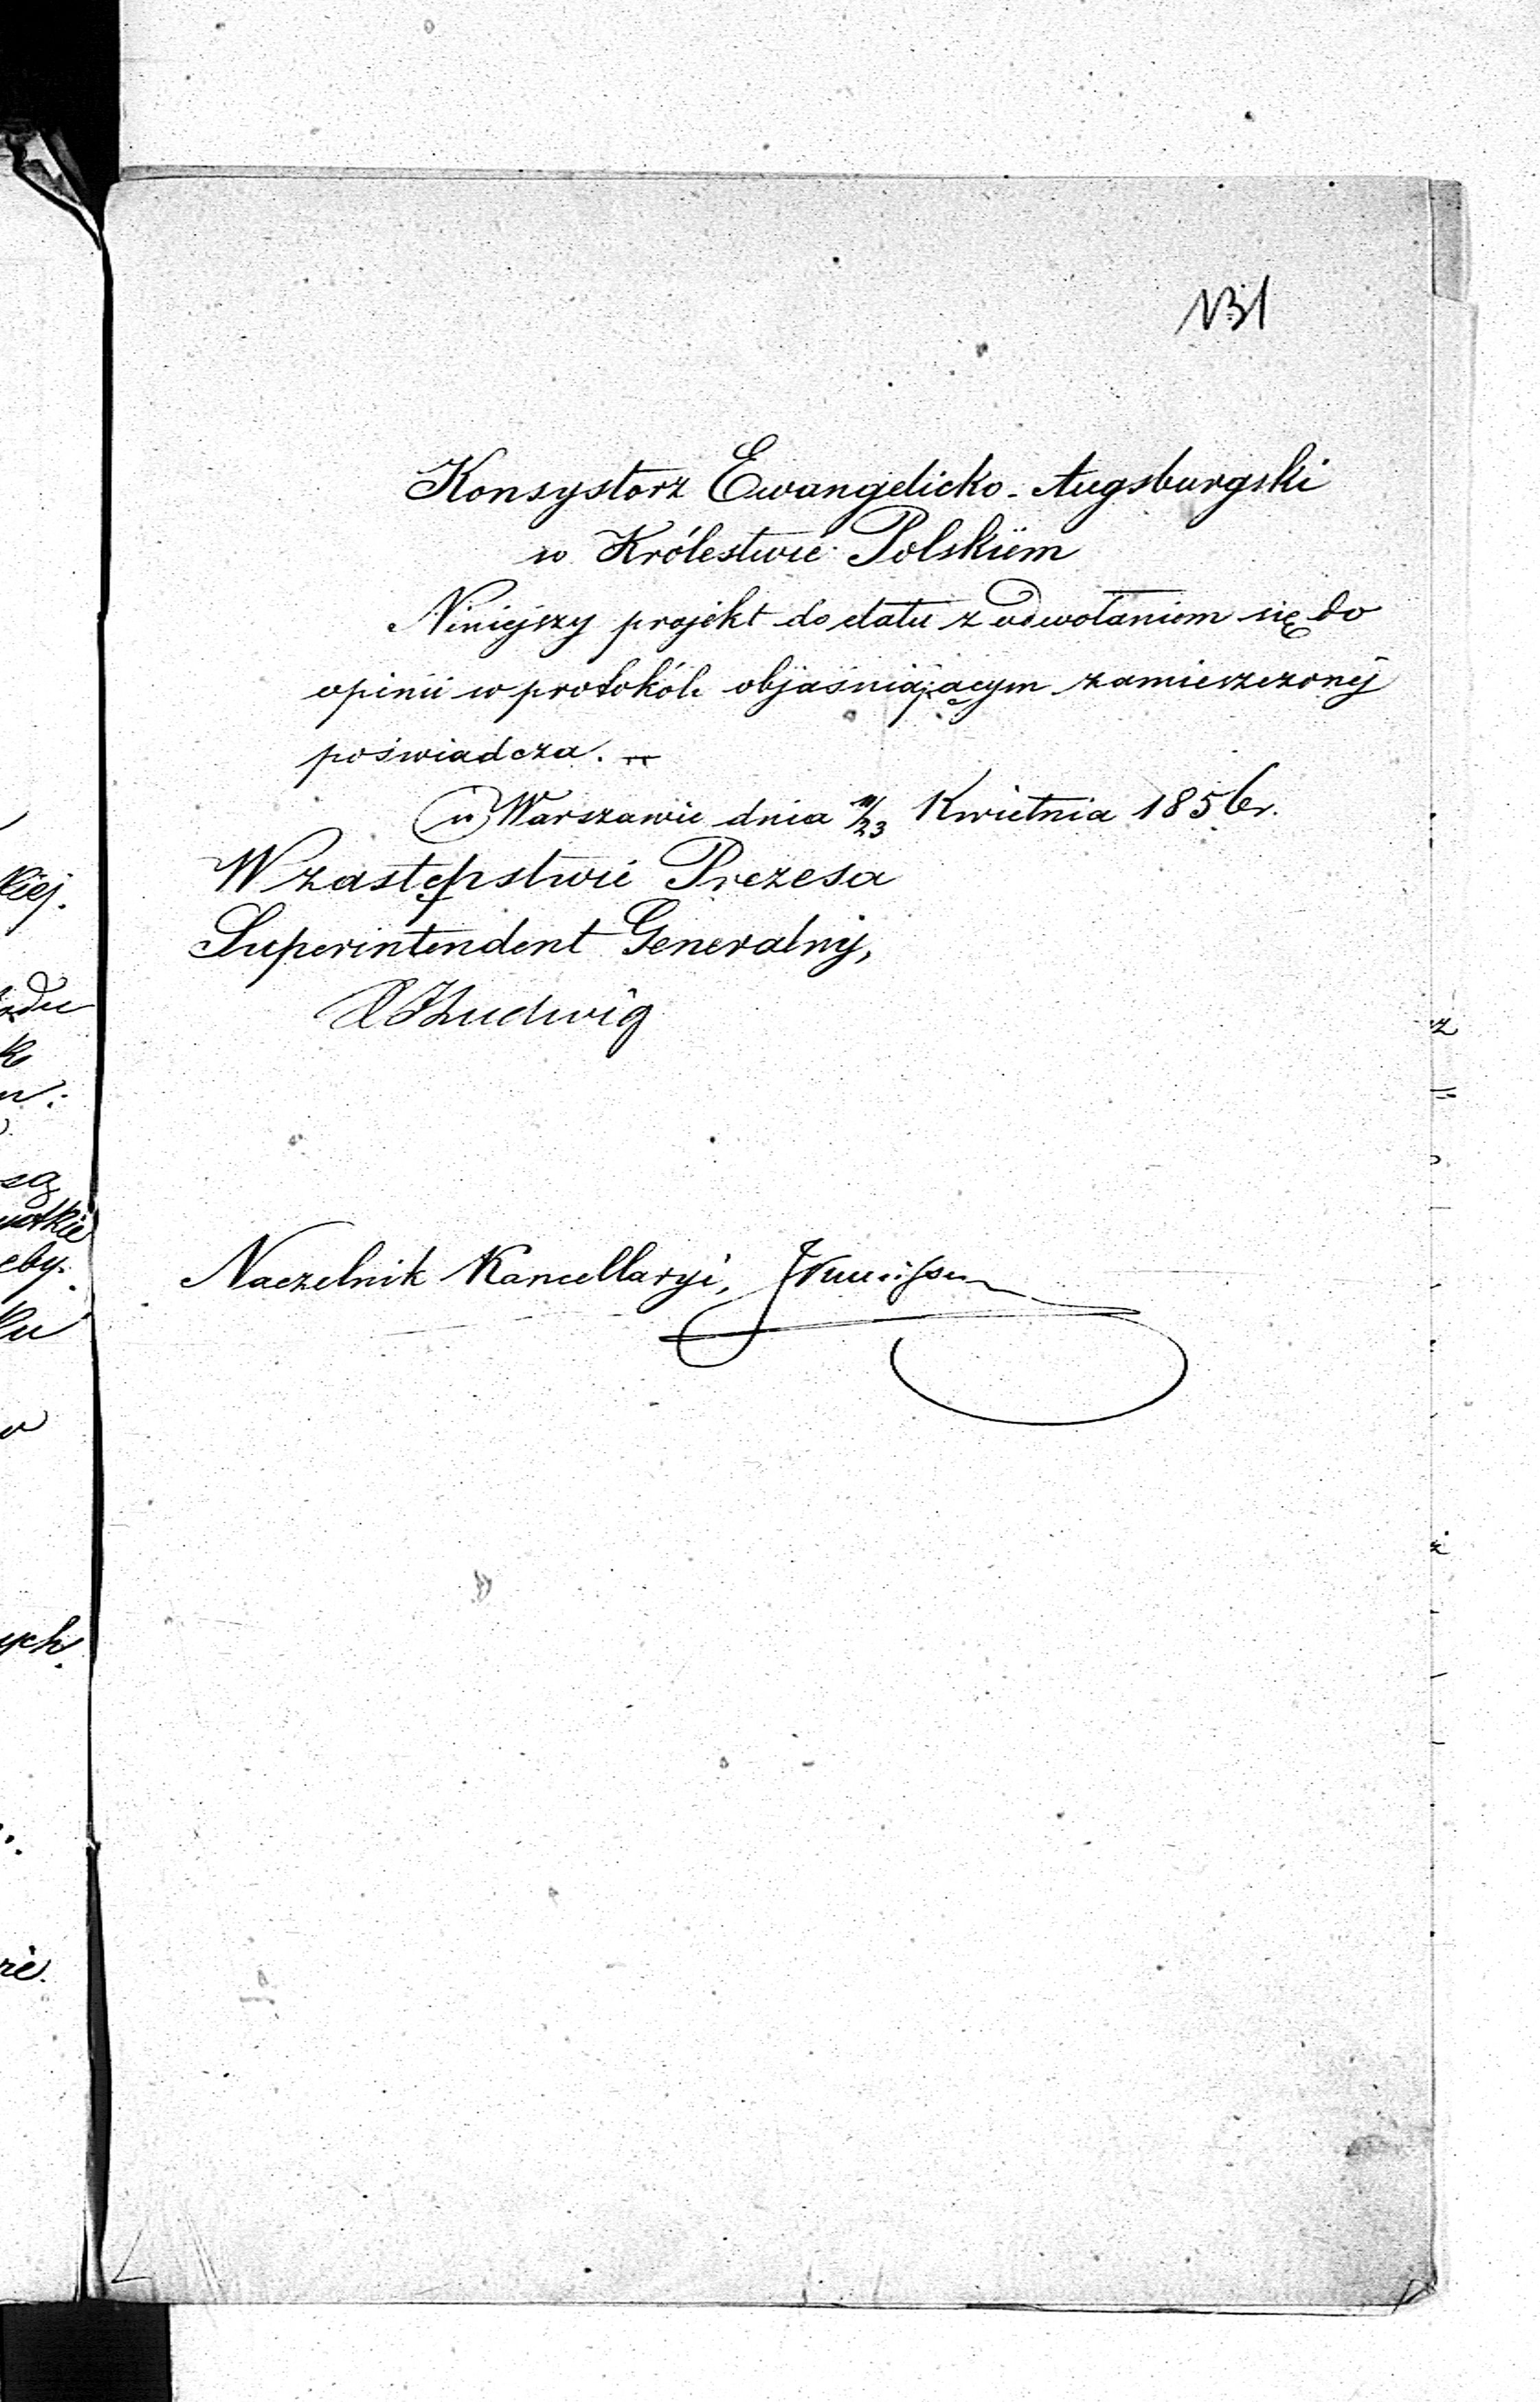 131
Konsystorz Ewangelicko-Augsburgski
w Królestwie Polskiem
Niniejszy projekt do etatu z odwołaniem się do
opinii w protokóle objaśniającym zamieszczonéj
poświadcza.
w Warszawie dnia 11/23 Kwietnia 1856 r.
W zastępstwie Prezesa
Superintendent Generalny,
Ludwig
Naczelnik Kancellaryi,